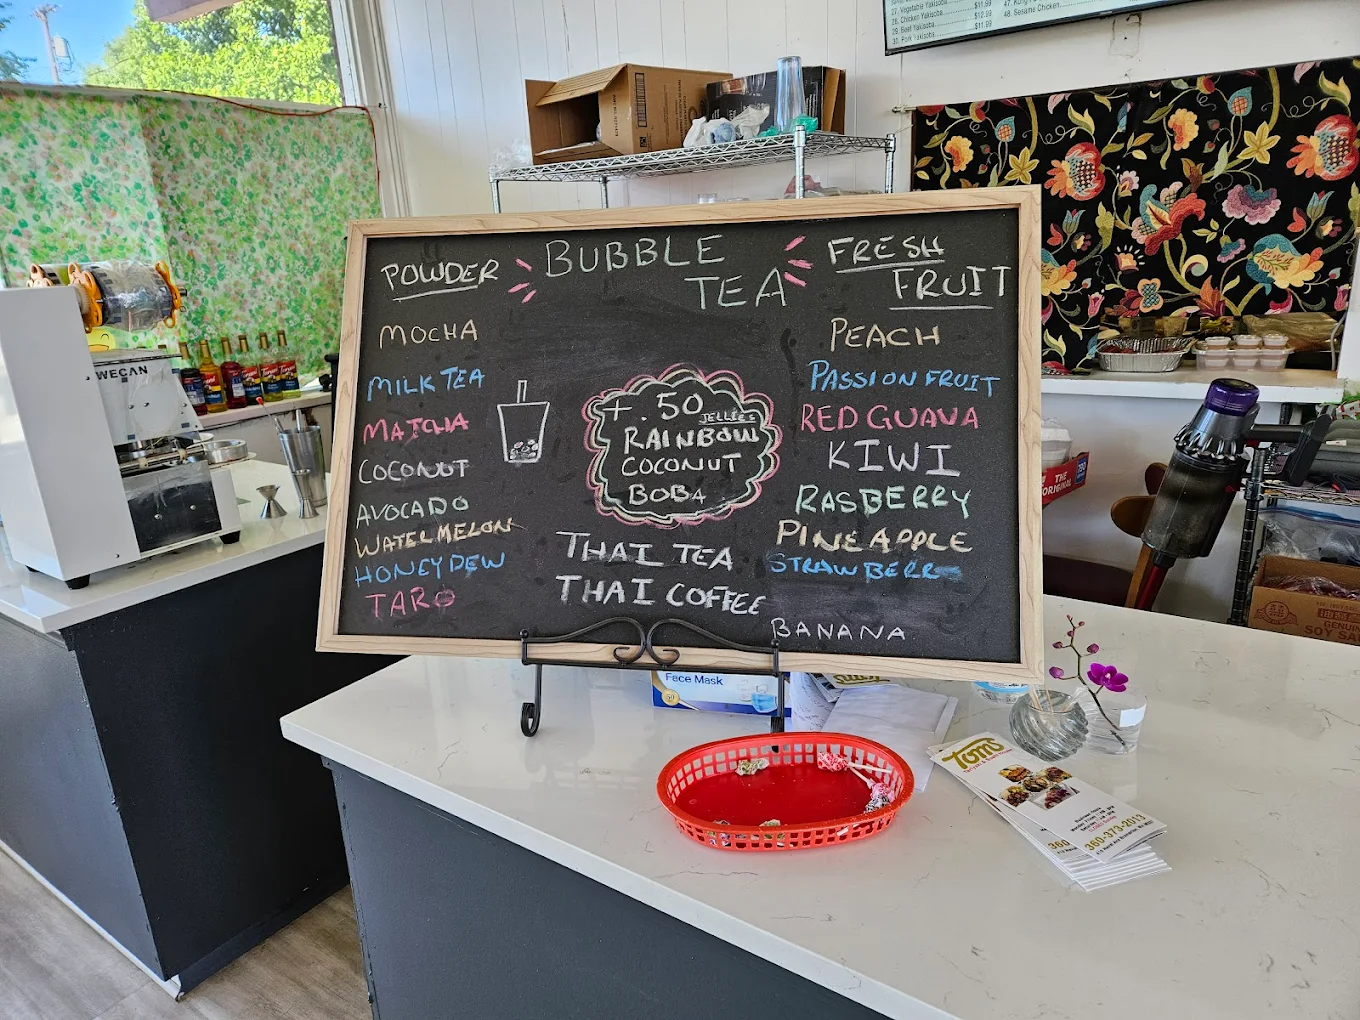 27. Vegetable Yakisoba
$11.99
28. Chicken Yakisoba
$12.99
29. Beef Yakisoba
$11.99
30. Pork Yakisoba
48. Sesame Chicken
WECAN
POWDER
MOCHA
MILK TEA
MATCHA
COCONUT
AVOCADO
WATELMELON
HONEYDEW
TARO
BUBBLE
TEA
+.50
JELLIES
RAINBOW
COCONUT
BOBA
THAI TEA
THAI COFFEE
FRESH
FRUIT
PEACH
PASSION FRUIT
RED GUAVA
KIWI
RASBERRY
PINEAPPLE
STRAWBERR
BANANA
THE
ORIGINAL
Face Mask
50
TOM
360-373-2013
360